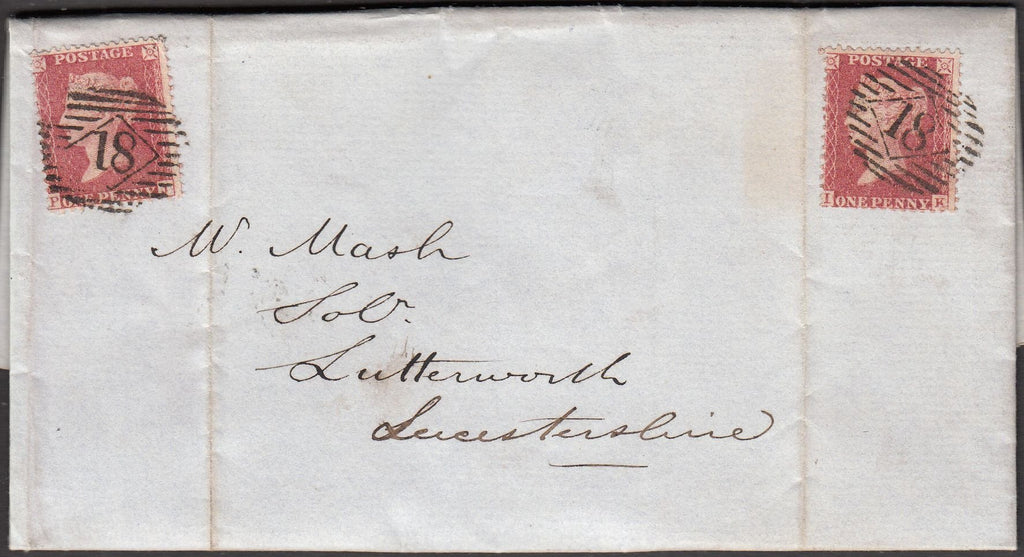 POSTAGE
18
P ONE PENNY
POSTAGE
18
I ONE PENNY K
Mr. Mash
Solr.
Lutterworth
Leicestershire